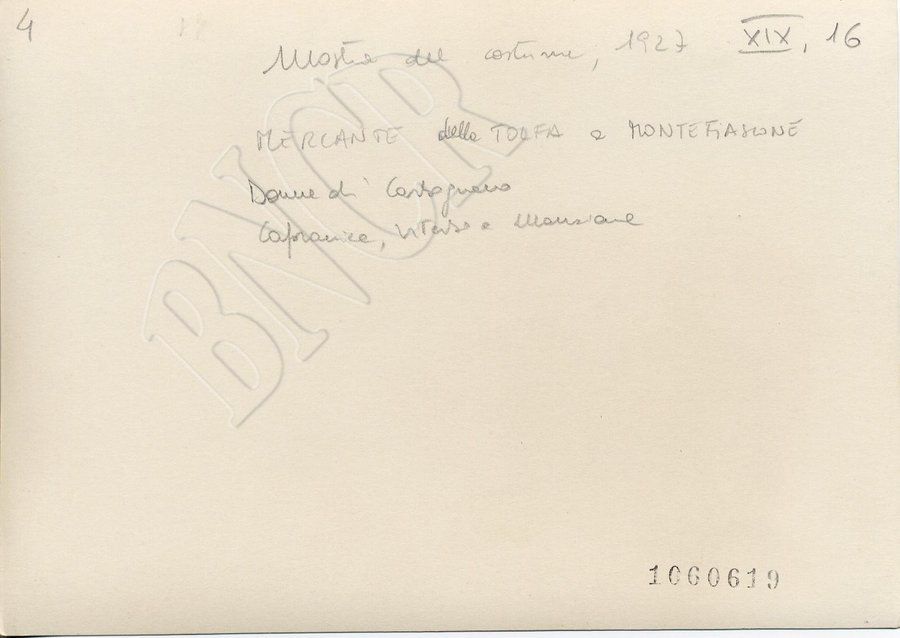 4
Mostra del costume, 1927 XIX, 16
MERCANTE della TOLFA a MONTEFIASCONE
Donne di
Capranica, Viterbo e Manziana
BNCR
1060619